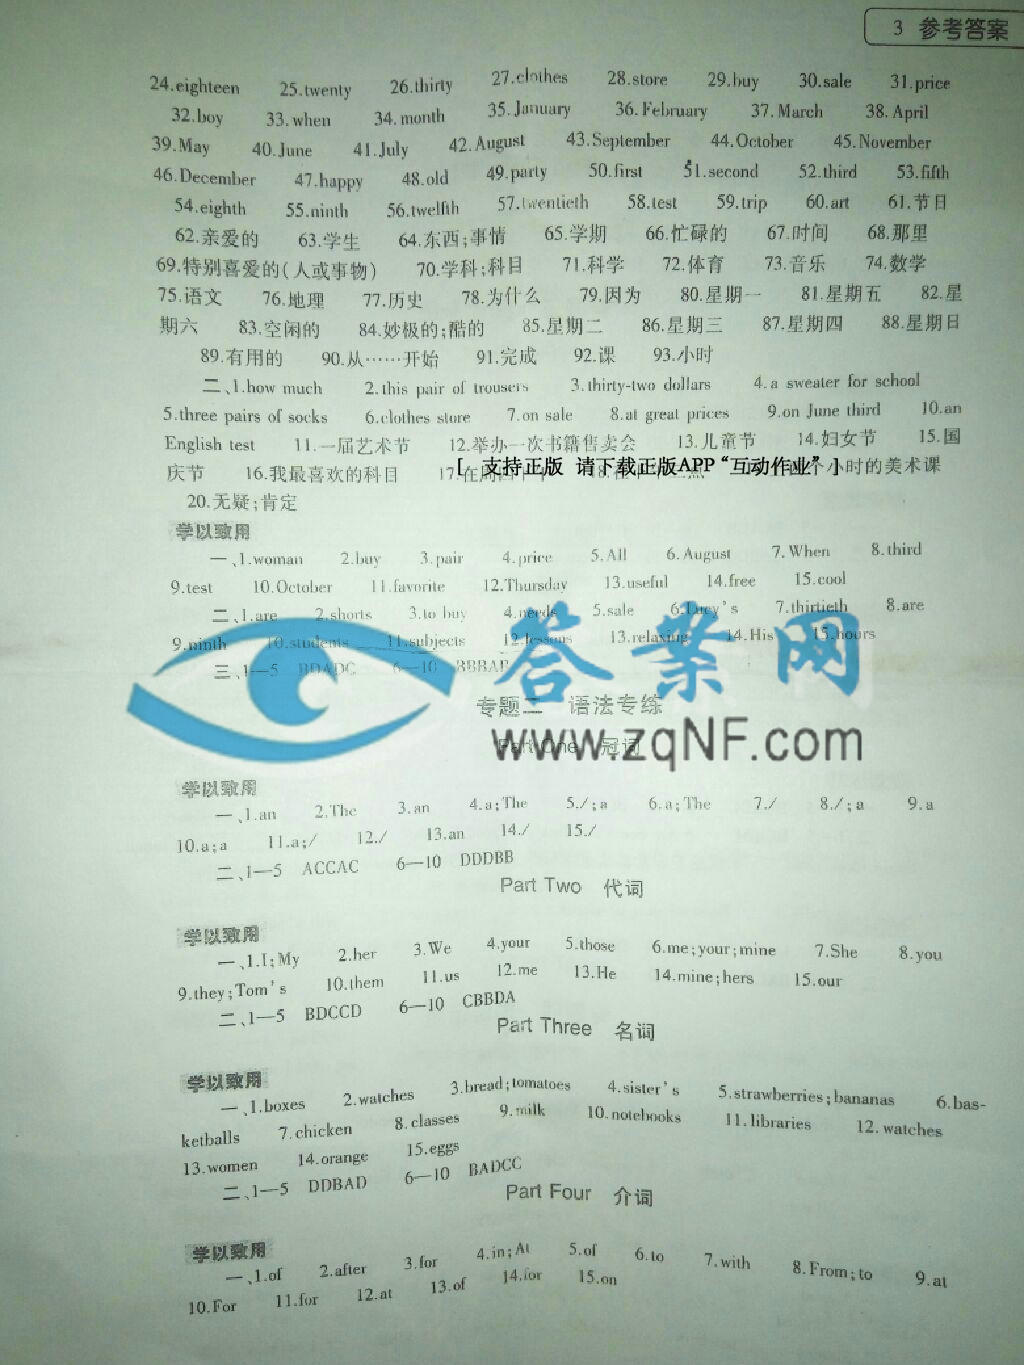 3 参考答案
24.eighteen 25.twenty 26.thirty 27.clothes 28.store 29.buy 30.sale 31.price
32.boy 33.when 34.month 35.January 36.February 37.March 38.April
39.May 40.June 41.July 42.August 43.September 44.October 45.November
46.December 47.happy 48.old 49.party 50.first 51.second 52.third 53.fifth
54.eighth 55.ninth 56.twelfth 57.twentieth 58.test 59.trip 60.art 61.节日
62.亲爱的 63.学生 64.东西;事情 65.学期 66.忙碌的 67.时间 68.那里
69.特别喜爱的(人或事物) 70.学科;科目 71.科学 72.体育 73.音乐 74.数学
75.语文 76.地理 77.历史 78.为什么 79.因为 80.星期一 81.星期五 82.星
期六 83.空闲的 84.妙极的;酷的 85.星期二 86.星期三 87.星期四 88.星期日
89.有用的 90.从……开始 91.完成 92.课 93.小时
二、1.how much 2.this pair of trousers 3.thirty-two dollars 4.a sweater for school
5.three pairs of socks 6.clothes store 7.on sale 8.at great prices 9.on June third 10.an
English test 11.一届艺术节 12.举办一次书籍售卖会 13.儿童节 14.妇女节 15.国
庆节 16.我最喜欢的科目 17.在周四下午 个小时的美术课
[ 支持正版 请下载正版APP“互动作业” ]
20.无疑;肯定
学以致用
一、1.woman 2.buy 3.pair 4.price 5.All 6.August 7.When 8.third
9.test 10.October 11.favorite 12.Thursday 13.useful 14.free 15.cool
二、1.are 2.shorts 3.to buy 4.needs 5.sale 6.Lucy's 7.thirtieth 8.are
9.ninth 10.students 11.subjects 12.lessons 13.relaxing 14.His 15.hours
三、1—5 BDADC 6—10
答案网
专题二 语法专练
www.zqNF.com
Part One 冠词
学以致用
一、1.an 2.The 3.an 4.a;The 5./;a 6.a;The 7./ 8./;a 9.a
10.a;a 11.a;/ 12./ 13.an 14./ 15./
二、1—5 ACCAC 6—10 DDDBB
Part Two 代词
学以致用
一、1.I;My 2.her 3.We 4.your 5.those 6.me;your;mine 7.She 8.you
9.they;Tom's 10.them 11.us 12.me 13.He 14.mine;hers 15.our
二、1—5 BDCCD 6—10 CBBDA
Part Three 名词
学以致用
一、1.boxes 2.watches 3.bread;tomatoes 4.sister's 5.strawberries;bananas 6.bas-
ketballs 7.chicken 8.classes 9.milk 10.notebooks 11.libraries 12.watches
13.women 14.orange 15.eggs
二、1—5 DDBAD 6—10 BADCC
Part Four 介词
学以致用
一、1.of 2.after 3.for 4.in;At 5.of 6.to 7.with 8.From;to 9.at
10.For 11.for 12.at 13.of 14.for 15.on